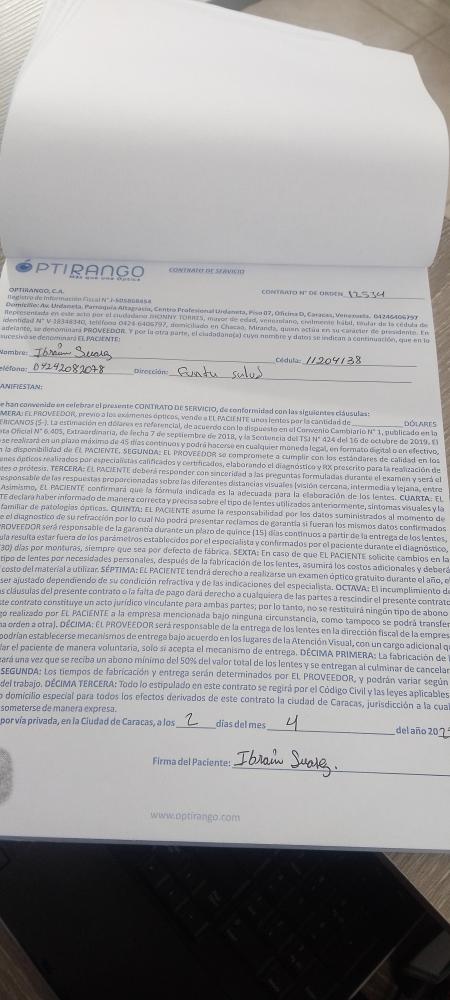 OPTIRANGO
Más que una Óptica
CONTRATO DE SERVICIO
OPTIRANGO, C.A.
CONTRATO N° DE ORDEN 12534
Registro de Información Fiscal N° J-505868454
Domicilio: Av. Urdaneta, Parroquia Altagracia, Centro Profesional Urdaneta, Piso 07, Oficina D, Caracas, Venezuela. 04246406797
Representada en este acto por el ciudadano JHONNY TORRES, mayor de edad, venezolano, civilmente hábil, titular de la cédula de
identidad N° V-18348340, teléfono 0424-6406797, domiciliado en Chacao, Miranda, quien actúa en su carácter de presidente. En
adelante, se denominará PROVEEDOR. Y por la otra parte, el ciudadano(a) cuyo nombre y datos se indican a continuación, que en lo
sucesivo se denominará EL PACIENTE:
Nombre: Ibrain Suarez Cédula: 11204138
eléfono: 04242082078 Dirección: salud
ANIFIESTAN:
e han convenido en celebrar el presente CONTRATO DE SERVICIO, de conformidad con las siguientes cláusulas:
MERA: EL PROVEEDOR, previo a los exámenes ópticos, vende a EL PACIENTE unos lentes por la cantidad de DÓLARES
ERICANOS ($-). La estimación en dólares es referencial, de acuerdo con lo dispuesto en el Convenio Cambiario N° 1, publicado en la
ta Oficial N° 6.405, Extraordinaria, de fecha 7 de septiembre de 2018, y la Sentencia del TSJ N° 424 del 16 de octubre de 2019. El
se realizará en un plazo máximo de 45 días continuos y podrá hacerse en cualquier moneda legal, en formato digital o en efectivo,
n la disponibilidad de EL PACIENTE. SEGUNDA: EL PROVEEDOR se compromete a cumplir con los estándares de calidad en los
nes ópticos realizados por especialistas calificados y certificados, elaborando el diagnóstico y RX prescrito para la realización de
tes o prótesis. TERCERA: EL PACIENTE deberá responder con sinceridad a las preguntas formuladas durante el examen y será el
esponsable de las respuestas proporcionadas sobre las diferentes distancias visuales (visión cercana, intermedia y lejana, entre
Asimismo, EL PACIENTE confirmará que la fórmula indicada es la adecuada para la elaboración de los lentes. CUARTA: EL
TE declara haber informado de manera correcta y precisa sobre el tipo de lentes utilizados anteriormente, síntomas visuales y la
familiar de patologías ópticas. QUINTA: EL PACIENTE asume la responsabilidad por los datos suministrados al momento de
e el diagnostico de su refracción por lo cual No podrá presentar reclamos de garantía si fueran los mismos datos confirmados
ROVEEDOR será responsable de la garantía durante un plazo de quince (15) días continuos a partir de la entrega de los lentes,
ula resulta estar fuera de los parámetros establecidos por el especialista y confirmados por el paciente durante el diagnóstico,
(30) días por monturas, siempre que sea por defecto de fábrica. SEXTA: En caso de que EL PACIENTE solicite cambios en la
tipo de lentes por necesidades personales, después de la fabricación de los lentes, asumirá los costos adicionales y deberá
costo del material a utilizar. SÉPTIMA: EL PACIENTE tendrá derecho a realizarse un examen óptico gratuito durante el año, e
ser ajustado dependiendo de su condición refractiva y de las indicaciones del especialista. OCTAVA: El incumplimiento d
s cláusulas del presente contrato o la falta de pago dará derecho a cualquiera de las partes a rescindir el presente contrat
ste contrato constituye un acto jurídico vinculante para ambas partes; por lo tanto, no se restituirá ningún tipo de abon
go realizado por EL PACIENTE a la empresa mencionada bajo ninguna circunstancia, como tampoco se podrá transfer
na orden a otra). DÉCIMA: EL PROVEEDOR será responsable de la entrega de los lentes en la dirección fiscal de la empres
podrían establecerse mecanismos de entrega bajo acuerdo en los lugares de la Atención Visual, con un cargo adicional q
lar el paciente de manera voluntaria, solo si acepta el mecanismo de entrega. DÉCIMA PRIMERA: La fabricación de l
ará una vez que se reciba un abono mínimo del 50% del valor total de los lentes y se entregan al culminar de cancelar
SEGUNDA: Los tiempos de fabricación y entrega serán determinados por EL PROVEEDOR, y podrán variar según
del trabajo. DÉCIMA TERCERA: Todo lo estipulado en este contrato se regirá por el Código Civil y las leyes aplicables
o domicilio especial para todos los efectos derivados de este contrato la ciudad de Caracas, jurisdicción a la cual
someterse de manera expresa.
por vía privada, en la Ciudad de Caracas, a los 2 días del mes 4 del año 2025
Firma del Paciente: Ibrain Suarez.
www.optirango.com